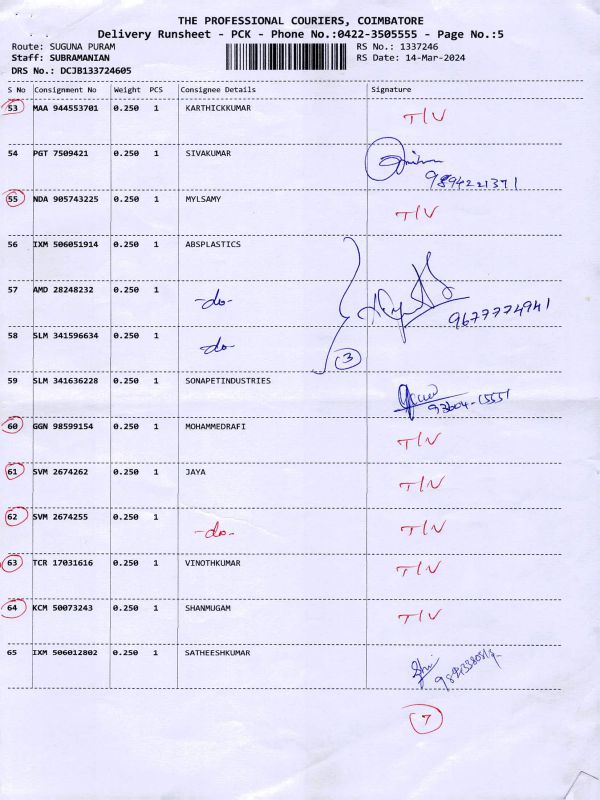 THE PROFESSIONAL COURIERS, COIMBATORE
Delivery Runsheet - PCK - Phone No.:0422-3505555 - Page No.:5
Route: SUGUNA PURAM RS No.: 1337246
Staff: SUBRAMANIAN RS Date: 14-Mar-2024
DRS No.: DCJB133724605
S No Consignment No Weight PCS Consignee Details Signature
53 MAA 944553701 0.250 1 KARTHICKKUMAR T/V
54 PGT 7509421 0.250 1 SIVAKUMAR
9894221371
55 NDA 905743225 0.250 1 MYLSAMY T/V
56 IXM 506051914 0.250 1 ABSPLASTICS
57 AMD 28248232 0.250 1 -do-
9677774941
58 SLM 341596634 0.250 1 do
3
59 SLM 341636228 0.250 1 SONAPETINDUSTRIES
60 GGN 98599154 0.250 1 MOHAMMEDRAFI T/V
61 SVM 2674262 0.250 1 JAYA T/V
62 SVM 2674255 0.250 1 -do- T/V
63 TCR 17031616 0.250 1 VINOTHKUMAR T/V
64 KCM 50073243 0.250 1 SHANMUGAM T/V
65 IXM 506012802 0.250 1 SATHEESHKUMAR
7